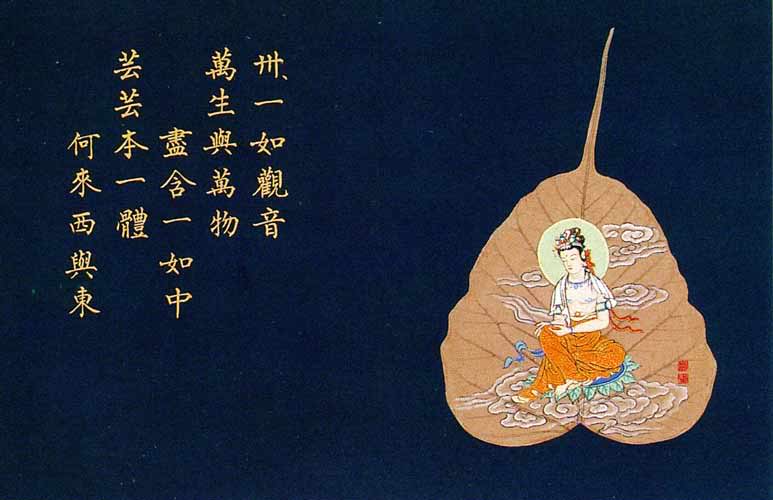 卅、一如觀音
萬生與萬物
盡含一如中
芸芸本一體
何來西與東